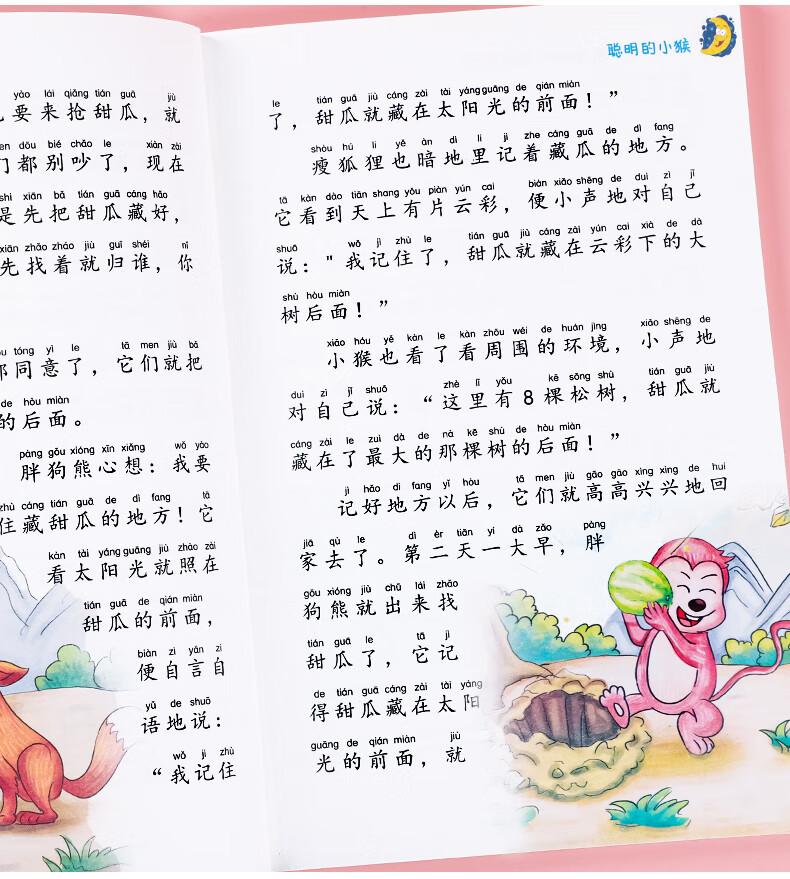 yào lái qiǎng tián guā jiù
要来抢甜瓜，就
dōu bié chǎo le xiàn zài
们都别吵了，现在
shì xiān bǎ tián guā cáng hǎo
是先把甜瓜藏好，
xiān zhǎo zháo jiù guī shéi nǐ
先找着就归谁，你
tóng yì le tā men jiù bǎ
同意了，它们就把
de hòu miàn
的后面。
pàng gǒu xióng xīn xiǎng wǒ yào
胖狗熊心想：我要
zhù cáng tián guā de dì fang tā
住藏甜瓜的地方！它
kàn tài yáng guāng jiù zhào zài
看太阳光就照在
tián guā de qián miàn
甜瓜的前面，
biàn zì yán zì
便自言自
yǔ de shuō
语地说：
wǒ jì zhù
“我记住
聪明的小猴
le tián guā jiù cáng zài tài yáng guāng de qián miàn
了，甜瓜就藏在太阳光的前面！”
shòu hú li yě àn dì li jì zhe cáng guā de dì fang
瘦狐狸也暗地里记着藏瓜的地方。
tā kàn dào tiān shang yǒu piàn yún cai biàn xiǎo shēng de duì zì jǐ
它看到天上有片云彩，便小声地对自己
shuō wǒ jì zhù le tián guā jiù cáng zài yún cai xià de dà
说："我记住了，甜瓜就藏在云彩下的大
shù hòu miàn
树后面！”
xiǎo hóu yě kàn le kàn zhōu wéi de huán jìng xiǎo shēng de
小猴也看了看周围的环境，小声地
duì zì jǐ shuō zhè lǐ yǒu kē sōng shù tián guā jiù
对自己说：“这里有8棵松树，甜瓜就
cáng zài le zuì dà de nà kē shù de hòu miàn
藏在了最大的那棵树的后面！”
jì hǎo dì fang yǐ hòu tā men jiù gāo gāo xìng xìng de huí
记好地方以后，它们就高高兴兴地回
jiā qù le dì èr tiān yí dà zǎo pàng
家去了。第二天一大早，胖
gǒu xióng jiù chū lái zhǎo
狗熊就出来找
tián guā le tā jì
甜瓜了，它记
de tián guā cáng zài tài yáng
得甜瓜藏在太阳
guāng de qián miàn jiù
光的前面，就